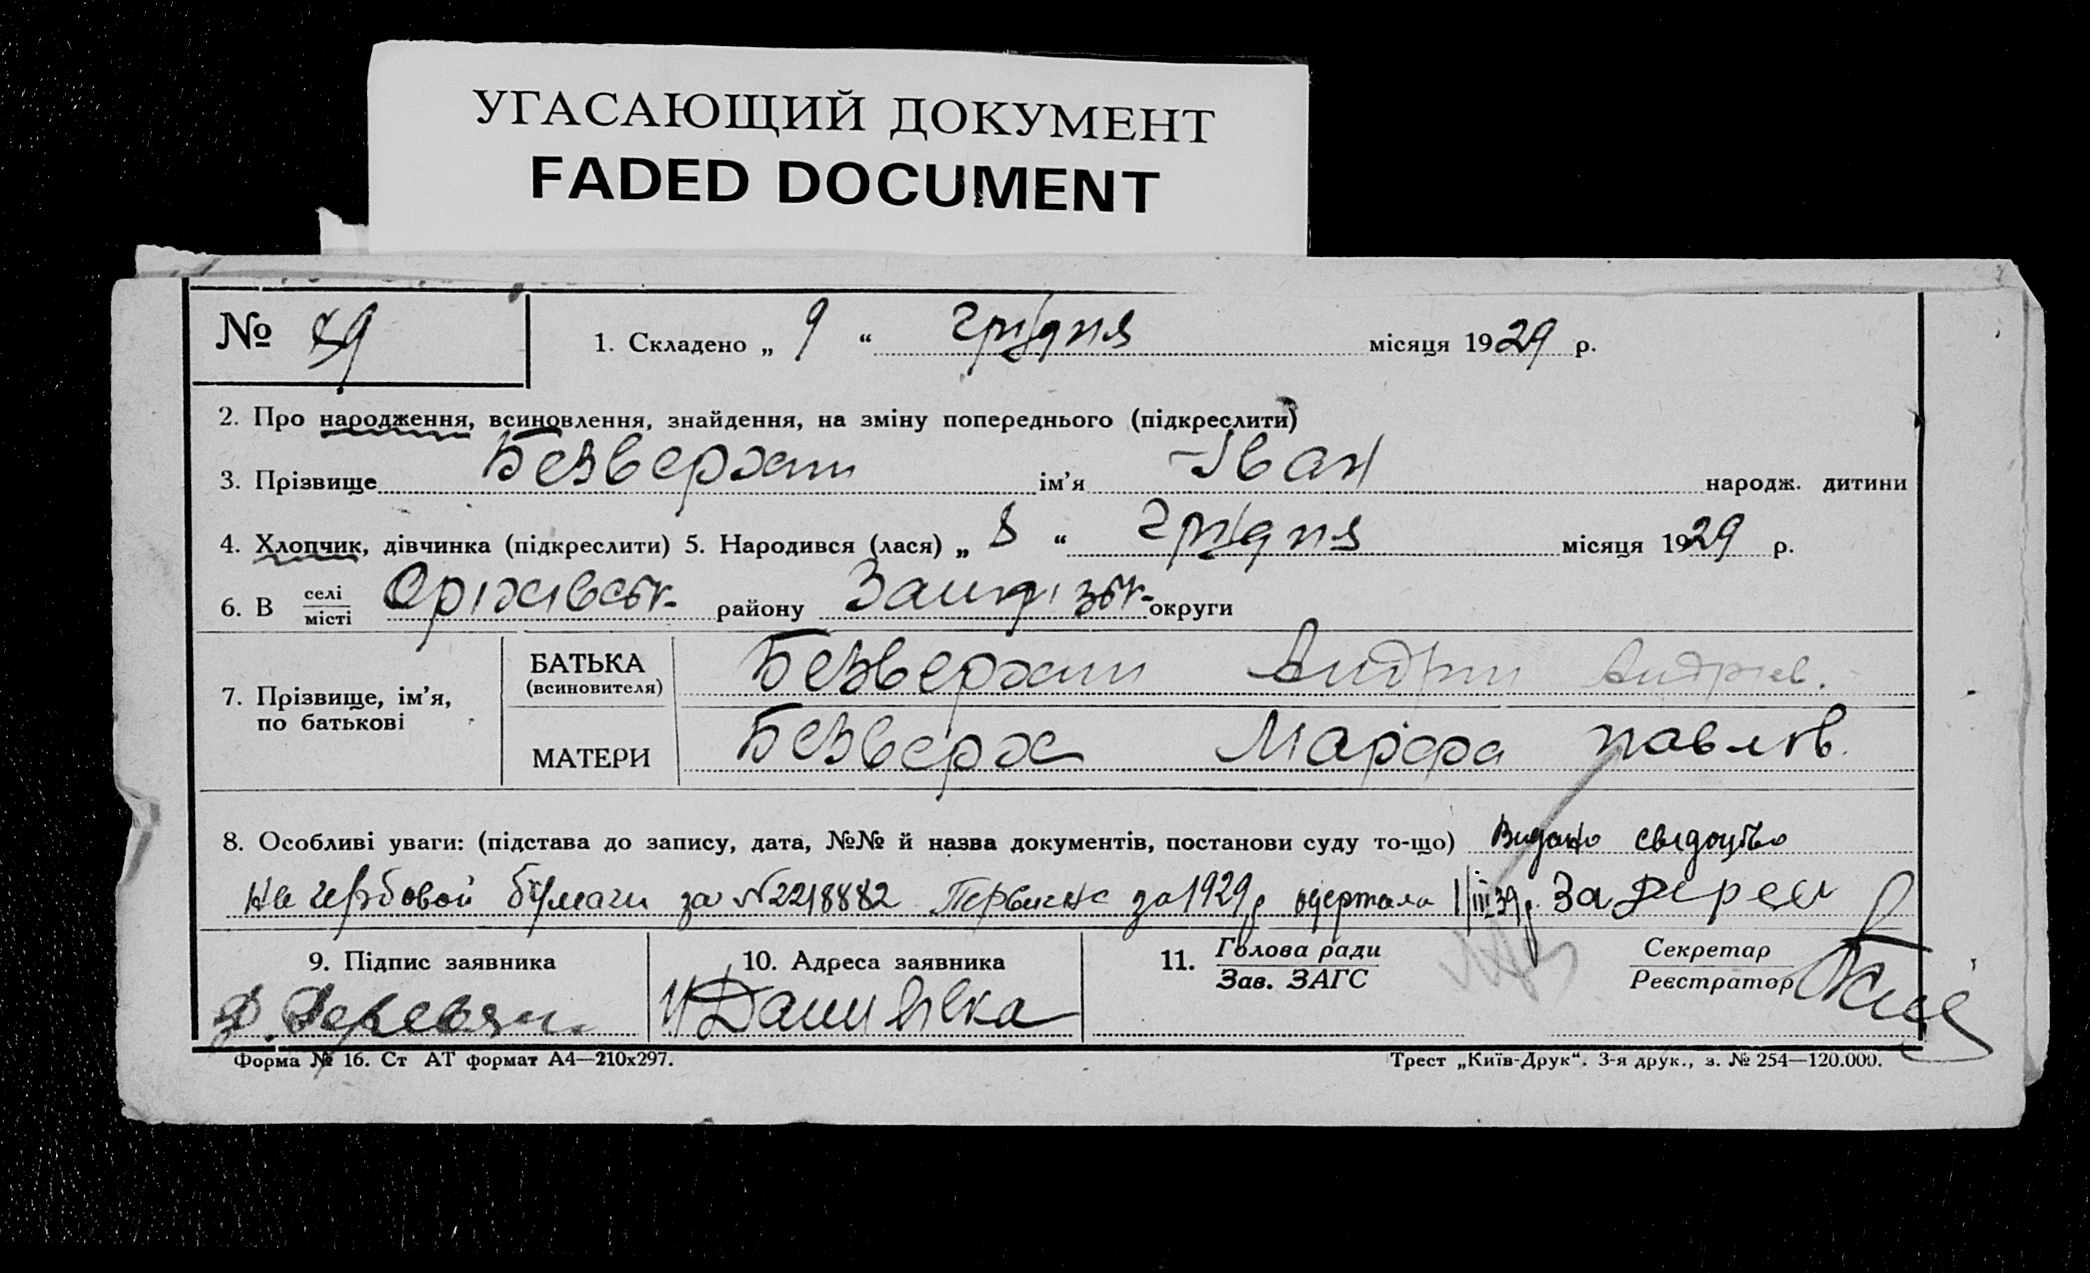 УГАСАЮЩИЙ ДОКУМЕНТ
FADED DOCUMENT
№ 89
1. Складено „ 9 “ грудня місяця 1929 р.
2. Про народження, всиновлення, знайдення, на зміну попереднього (підкреслити)
3. Прізвище Безверхий ім'я Іван народж. дитини
4. Хлопчик, дівчинка (підкреслити) 5. Народився (лася) „ 8 “ грудня місяця 1929 р.
6. В селі місті Оріхівськ. району Запорізьк. округи
7. Прізвище, ім'я, по батькові
БАТЬКА (всиновителя) Безверхий Андрій Андрієв.
МАТЕРИ Безверх Марфа Павлов.
8. Особливі уваги: (підстава до запису, дата, №№ й назва документів, постанови суду то-що) Видано свідоцтво
на гербовой бумаги за №2218882 за 1929 р одержала 1/III 39 р.
9. Підпис заявника
10. Адреса заявника
11. Голова ради Зав. ЗАГС
Секретар Реєстратор
Форма № 16. Ст АТ формат А4—210х297.
Трест „Київ-Друк“. 3-я друк., з. № 254—120.000.